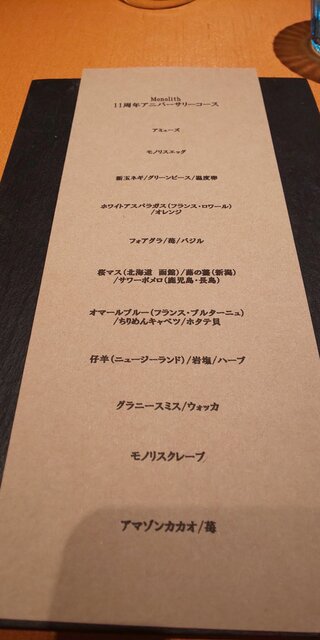 Monolith
11周年アニバーサリーコース
アミューズ
モノリスエッグ
新玉ネギ/グリーンピース/温度卵
ホワイトアスパラガス(フランス・ロワール)
/オレンジ
フォアグラ/苺/バジル
桜マス(北海道 函館)/蕗の薹(新潟)
/サワーポメロ(鹿児島・長島)
オマールブルー(フランス・ブルターニュ)
/ちりめんキャベツ/ホタテ貝
仔羊(ニュージーランド)/岩塩/ハーブ
グラニースミス/ウォッカ
モノリスクレープ
アマゾンカカオ/苺